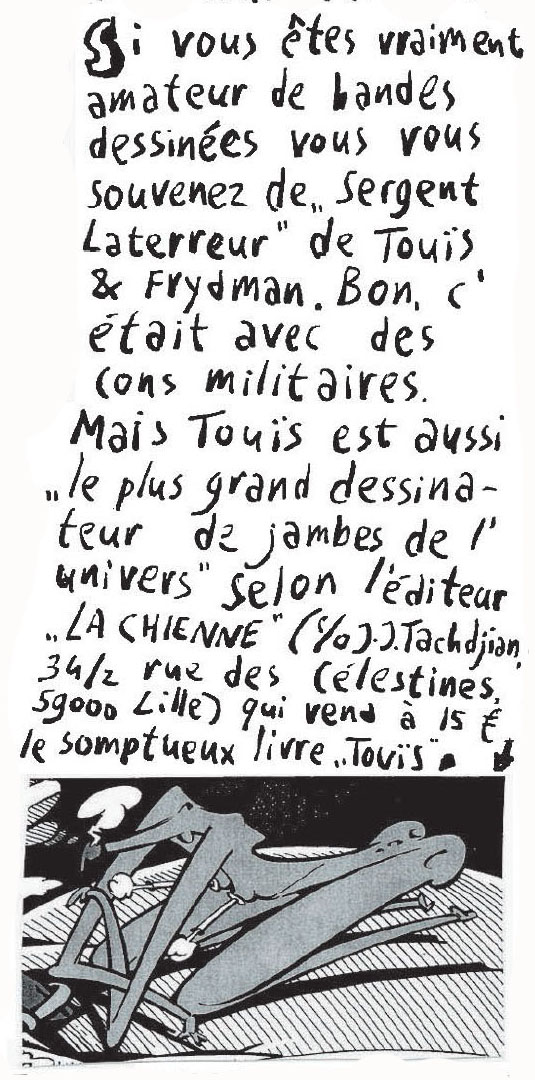 Si vous êtes vraiment
amateur de bandes
dessinées vous vous
souvenez de „Sergent
Laterreur" de Touïs
& Frydman. Bon, c'
était avec des
cons militaires.
Mais Touïs est aussi
„le plus grand dessina-
teur de jambes de l'
univers" selon l'éditeur
„LA CHIENNE" (℅ J.J.Tachdjian,
34/2 rue des Célestines,
59000 Lille) qui vend à 15 €
le somptueux livre „Touïs".